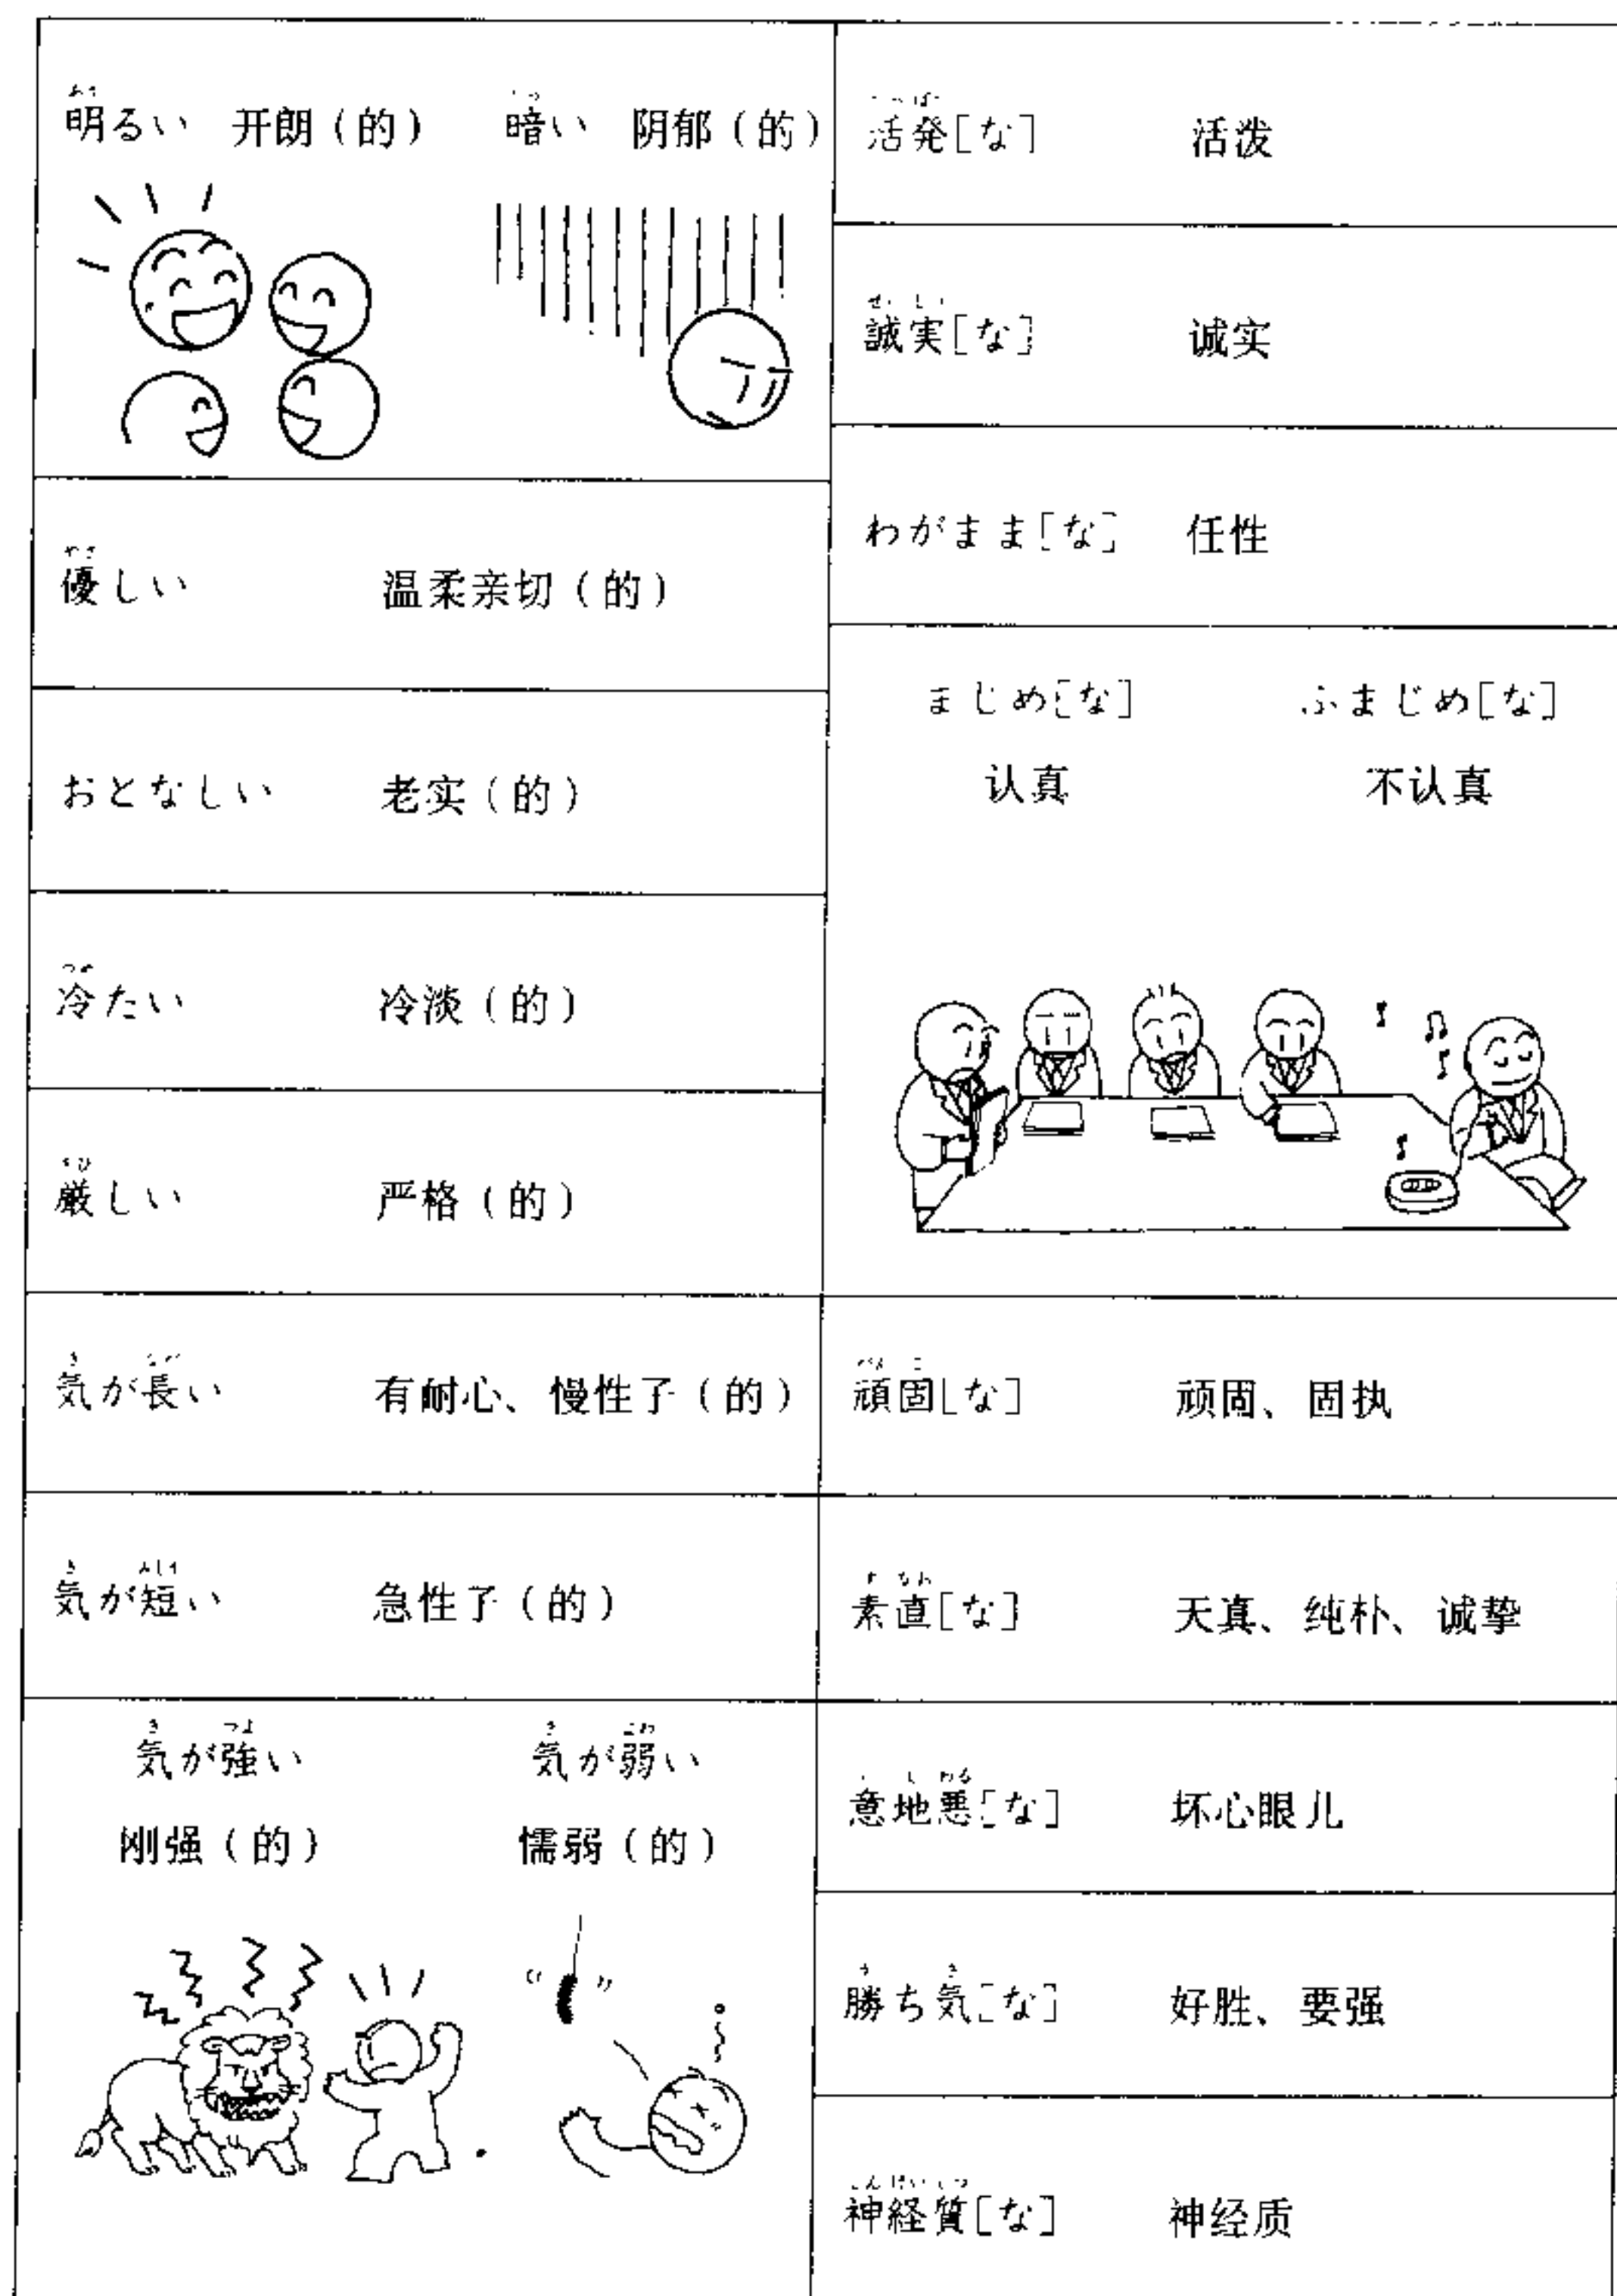 明るい 开朗（的） 暗い 阴郁（的）
優しい 温柔亲切（的）
おとなしい 老实（的）
冷たい 冷淡（的）
厳しい 严格（的）
気が長い 有耐心、慢性子（的）
気が短い 急性子（的）
気が強い 気が弱い
刚强（的） 懦弱（的）
活発［な］ 活泼
誠実［な］ 诚实
わがまま［な］ 任性
まじめ［な］ ふまじめ［な］
认真 不认真
頑固［な］ 顽固、固执
素直［な］ 天真、纯朴、诚挚
意地悪［な］ 坏心眼儿
勝ち気［な］ 好胜、要强
神経質［な］ 神经质